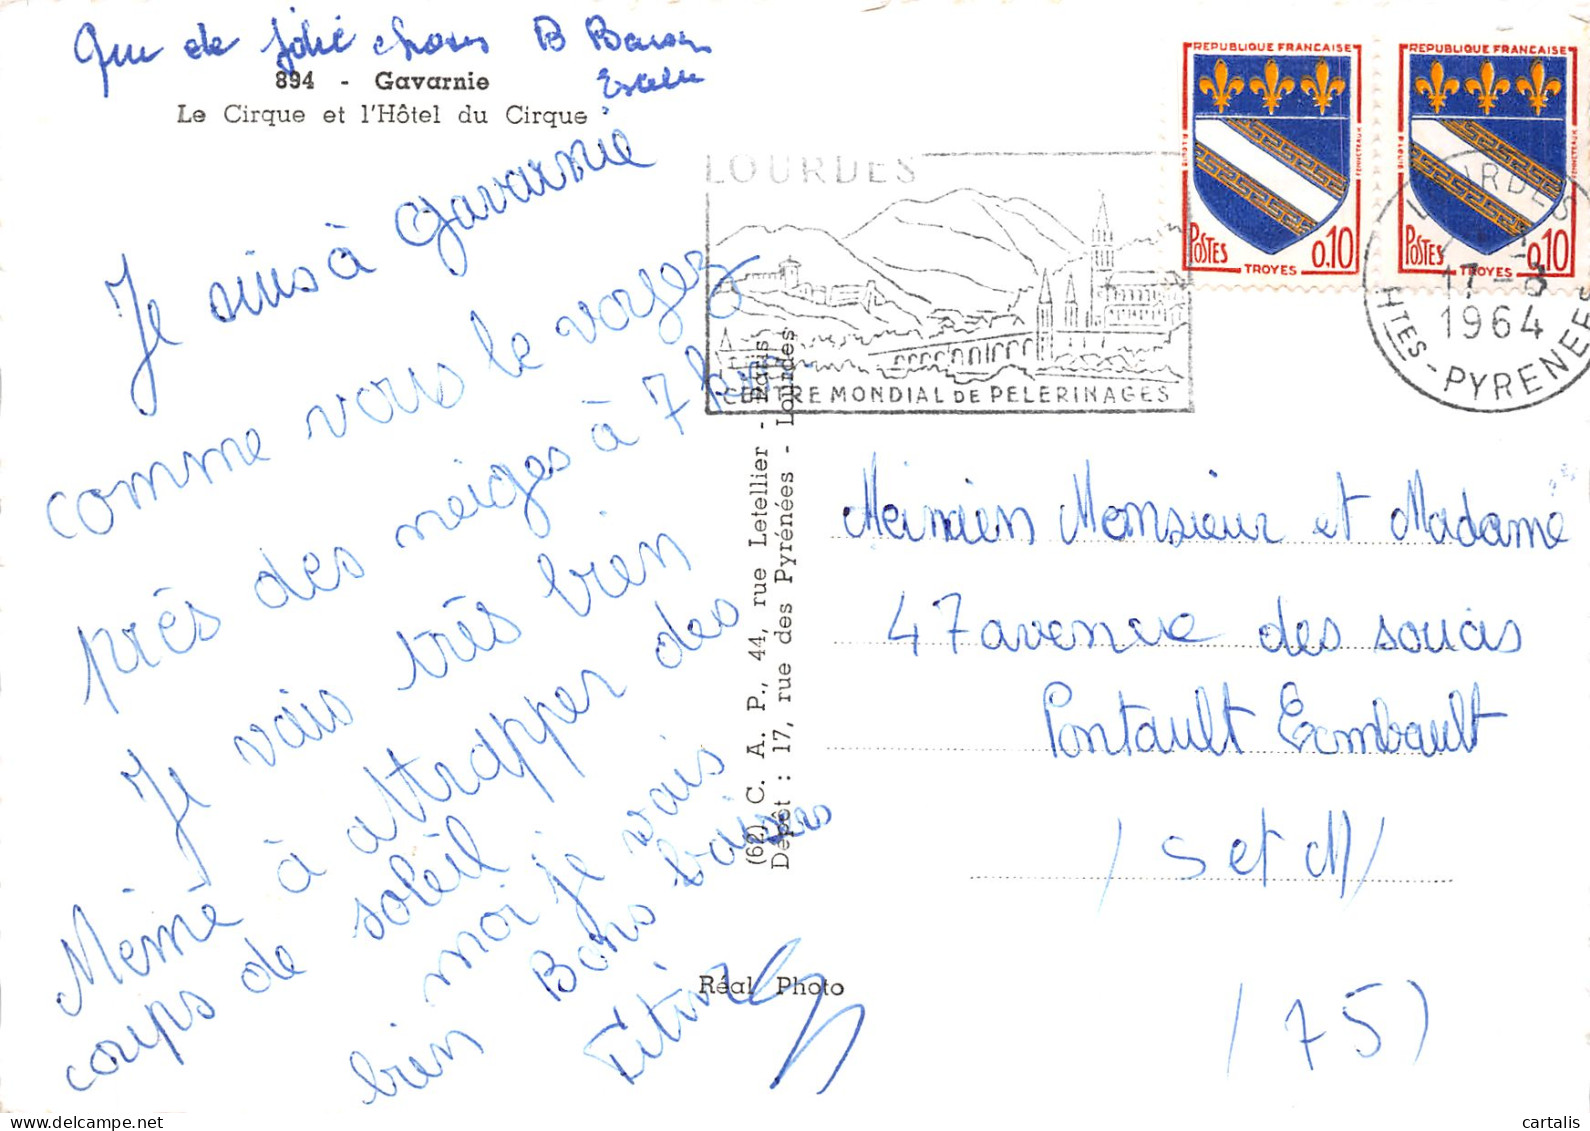 Que de jolie choses B Baiser
894 - Gavarnie
Le Cirque et l'Hôtel du Cirque
Je suis à Gavarnie
comme vous le voyez
près des neiges à 7 km
Je vais très bien
Mémé à attrapper des
coups de soleil
moi je vais
bien Bons baisers
Titine
(62) C. A. P., 44, rue Letellier - Paris
Dépôt : 17, rue des Pyrénées - Lourdes
Réal Photo
LOURDES
CENTRE MONDIAL DE PELERINAGES
REPUBLIQUE FRANCAISE
POSTES 0.10
TROYES
REPUBLIQUE FRANCAISE
POSTES 0.10
TROYES
LOURDES
17 -8
1964
HTES-PYRENEES
Monsieur et Madame
47 avenue des soucis
Pontault Combault
/ S et M /
(75)
cartalis
www.delcampe.net